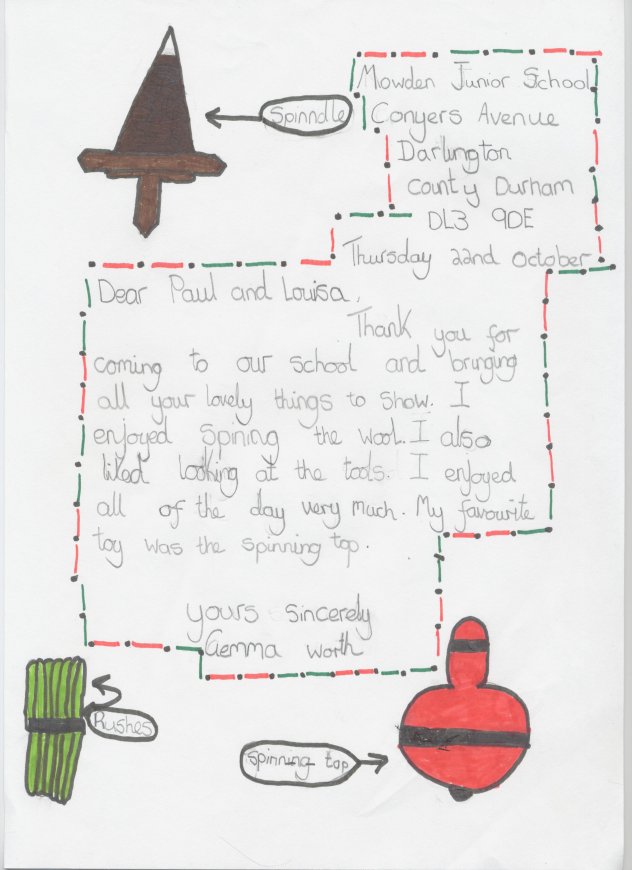 Spinndle
Mowden Junior School
Conyers Avenue
Darlington
County Durham
DL3 9DE
Thursday 22nd October
Dear Paul and Louisa,
Thank you for
coming to our school and bringing
all your lovely things to show. I
enjoyed spining the wool. I also
liked looking at the tools. I enjoyed
all of the day very much. My favourite
toy was the spinning top.
yours sincerely
Gemma worth
Rushes
spinning top